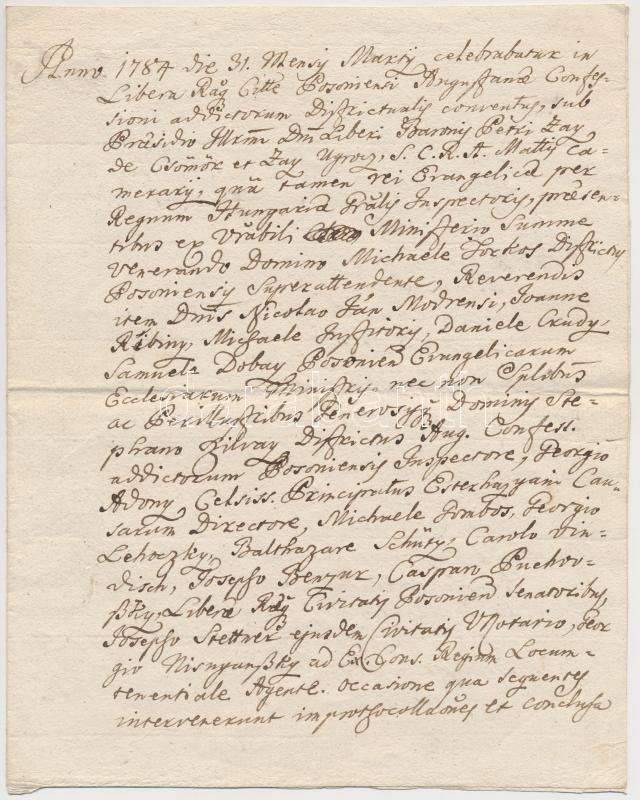 Anno 1784 die 31. Mensis Martij celebrabatur in
Libera Rag Citte Posoniensi Augustanæ Confes-
sioni addictorum Districtualis conventus, sub
Præsidio Illrmi Dni Liberi Baronis Petri Zay
de Csömör et Zay Ugrocz, S. C. R. A. Mattis Ca-
merarij, quâ tamen rei Evangelicæ per
Regnum Hungariæ Gralis Inspectoris, præsen-
tibus ex Vrabili Ministerio Summe
Venerando Domino Michaele Torkos Districtus
Posoniensis Superattendente, Reverendis
item Dnis Nicolao Ján Modrensi, Joanne
Ribiny, Michaele Institoris, Daniele Crudy,
Samuele Dobay Posonien Evangelicarum
Ecclesiarum Ministris, nec non Splibus
ac Perillustribus Generosisq Dominis Ste-
phano Zilvay Districtus Aug. Confess.
addictorum Posoniensis Inspectore, Georgio
Adony, Celsiss. Principatus Esterhazyani Cau-
sarum Directore, Michaele Gombos, Georgio
Lehoczky, Balthazare Schüty, Carolo Vin-
disch, Josepho Benzur, Casparo Puchov-
ßky, Liberæ Rag Civitatis Posonien Senatoribus,
Josepho Stettner ejusdem Civitatis VNotario, Geor
gio Nisnyanßky ad Ex. Cons. Regium Locum-
tenentiale Agente. occasione qua sequentes
intervenerunt improthocollaōnes et conclusa
darabanth